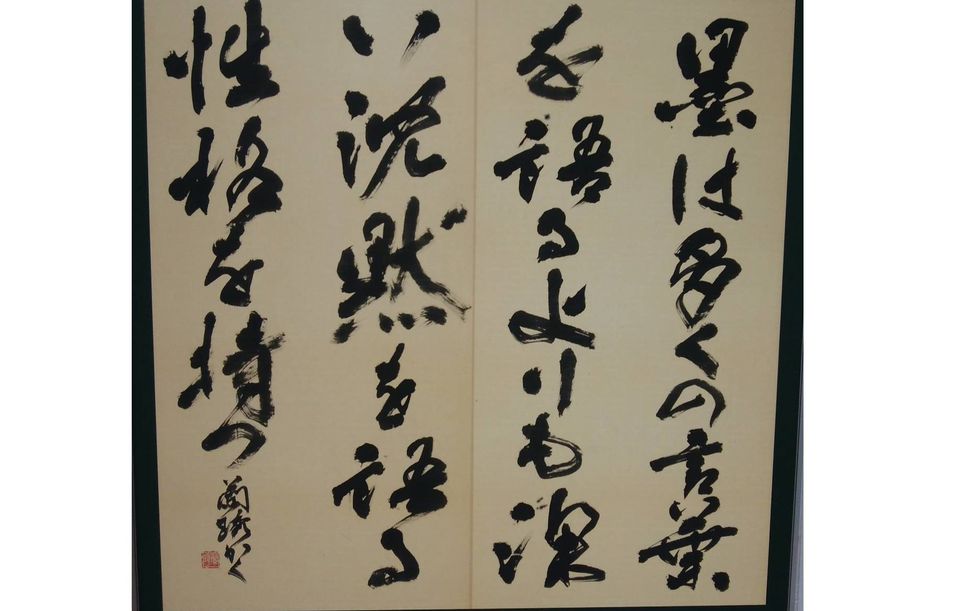 墨は多くの言葉
を語るよりも深
い沈黙を語る
性格を持つ
かく